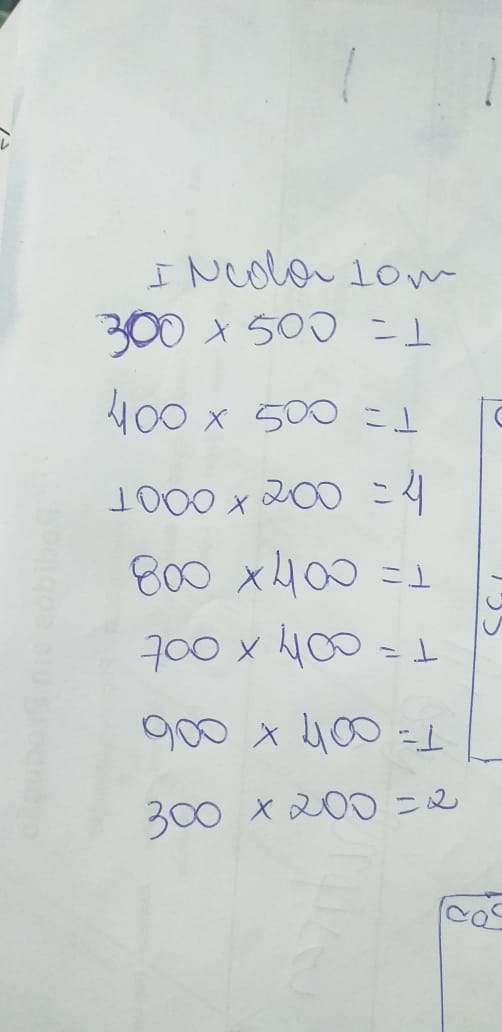 Incolor 10m
300 x 500 = 1
400 x 500 = 1
1000 x 200 = 4
800 x 400 = 1
700 x 400 = 1
900 x 400 = 1
300 x 200 = 2